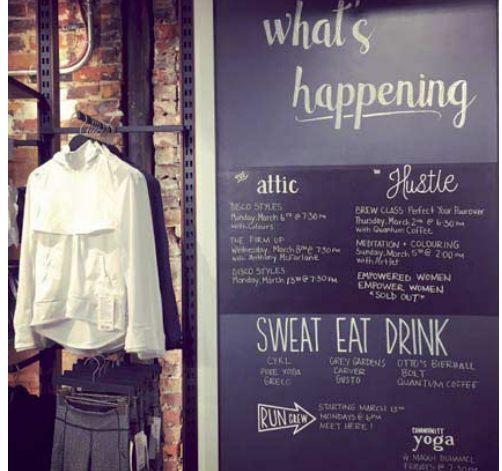 what's
happening
THE attic
DISCO STYLES
Monday, March 6TH @ 7:30 PM
with Colours
THE FIRM UP
Wednesday, March 8TH @ 7:30 PM
with Anthony McFarlane
DISCO STYLES
Monday, March 13TH @ 7:30 PM
THE Hustle
BREW CLASS: Perfect Your Pourover
Thursday, March 2ND @ 6:30 PM
with Quantum Coffee
MEDITATION + COLOURING
Sunday, March 5TH @ 2:00 PM
with Artjet
EMPOWERED WOMEN
EMPOWER WOMEN
*SOLD OUT*
SWEAT EAT DRINK
CYKL
PURE YOGA
GRECO
GREY GARDENS
CARVER
GUSTO
OTTO'S BIERHALL
BOLT
QUANTUM COFFEE
RUN CREW
STARTING MARCH 13TH
MONDAYS @ 6PM
MEET HERE!
COMMUNITY
yoga
W MAGGI DUHAMEL
FRIDAYS @ 7:30 AM